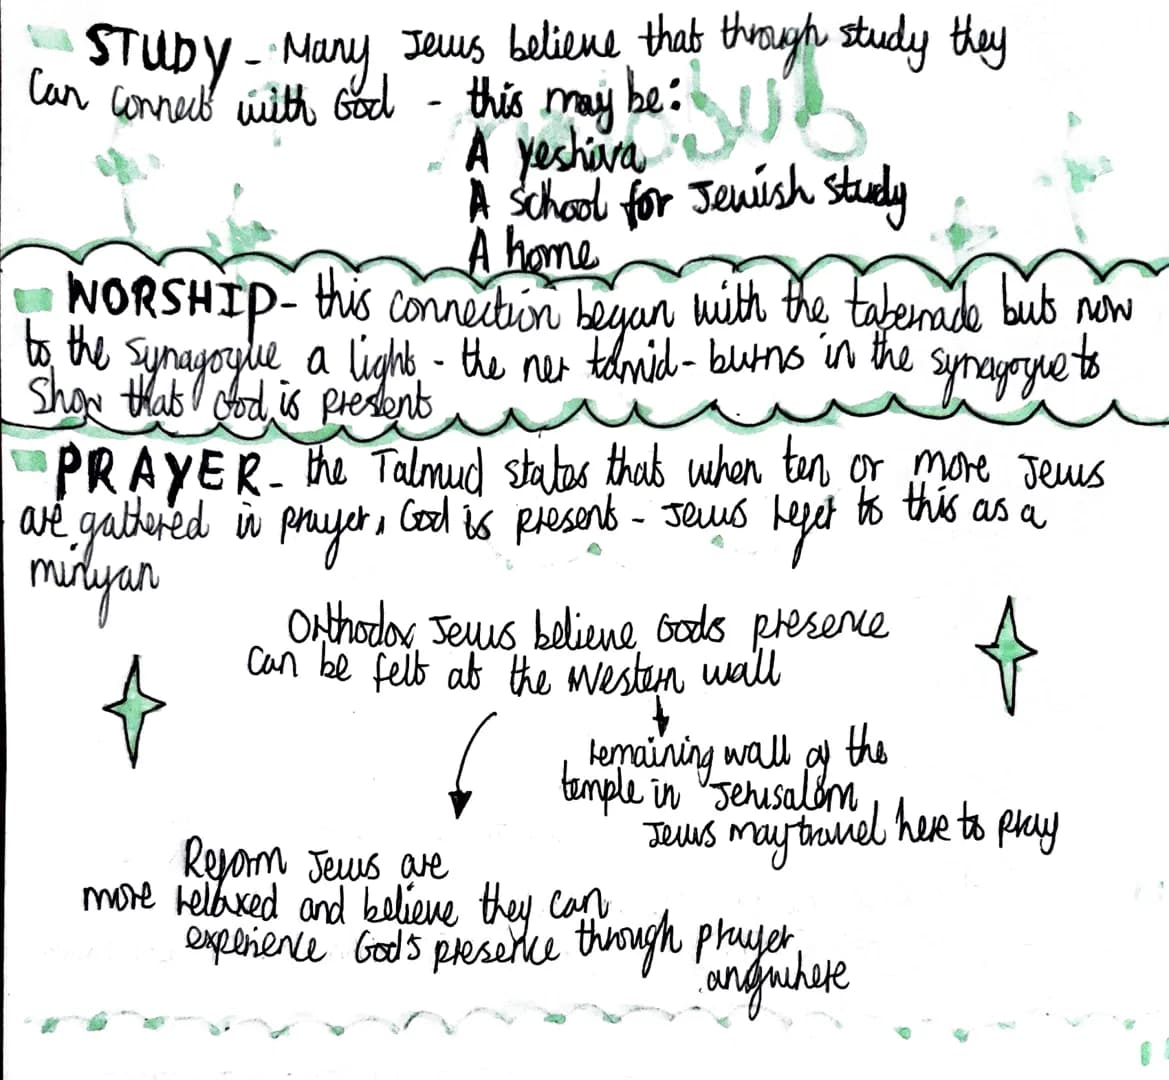 STUDY - Many Jews believe that through study they
can connect with God - this may be:
A yeshiva
A school for Jewish study
A home
WORSHIP - this connection began with the tabernacle but now
to the synagogue a light - the ner tamid - burns in the synagogue to
show that God is present
PRAYER - the Talmud states that when ten or more Jews
are gathered in prayer, God is present - Jews refer to this as a
minyan
Orthodox Jews believe Gods presence
can be felt at the Western wall
remaining wall of the
temple in Jerusalem
Jews may travel here to pray
Reform Jews are
more relaxed and believe they can
experience God's presence through prayer
anywhere